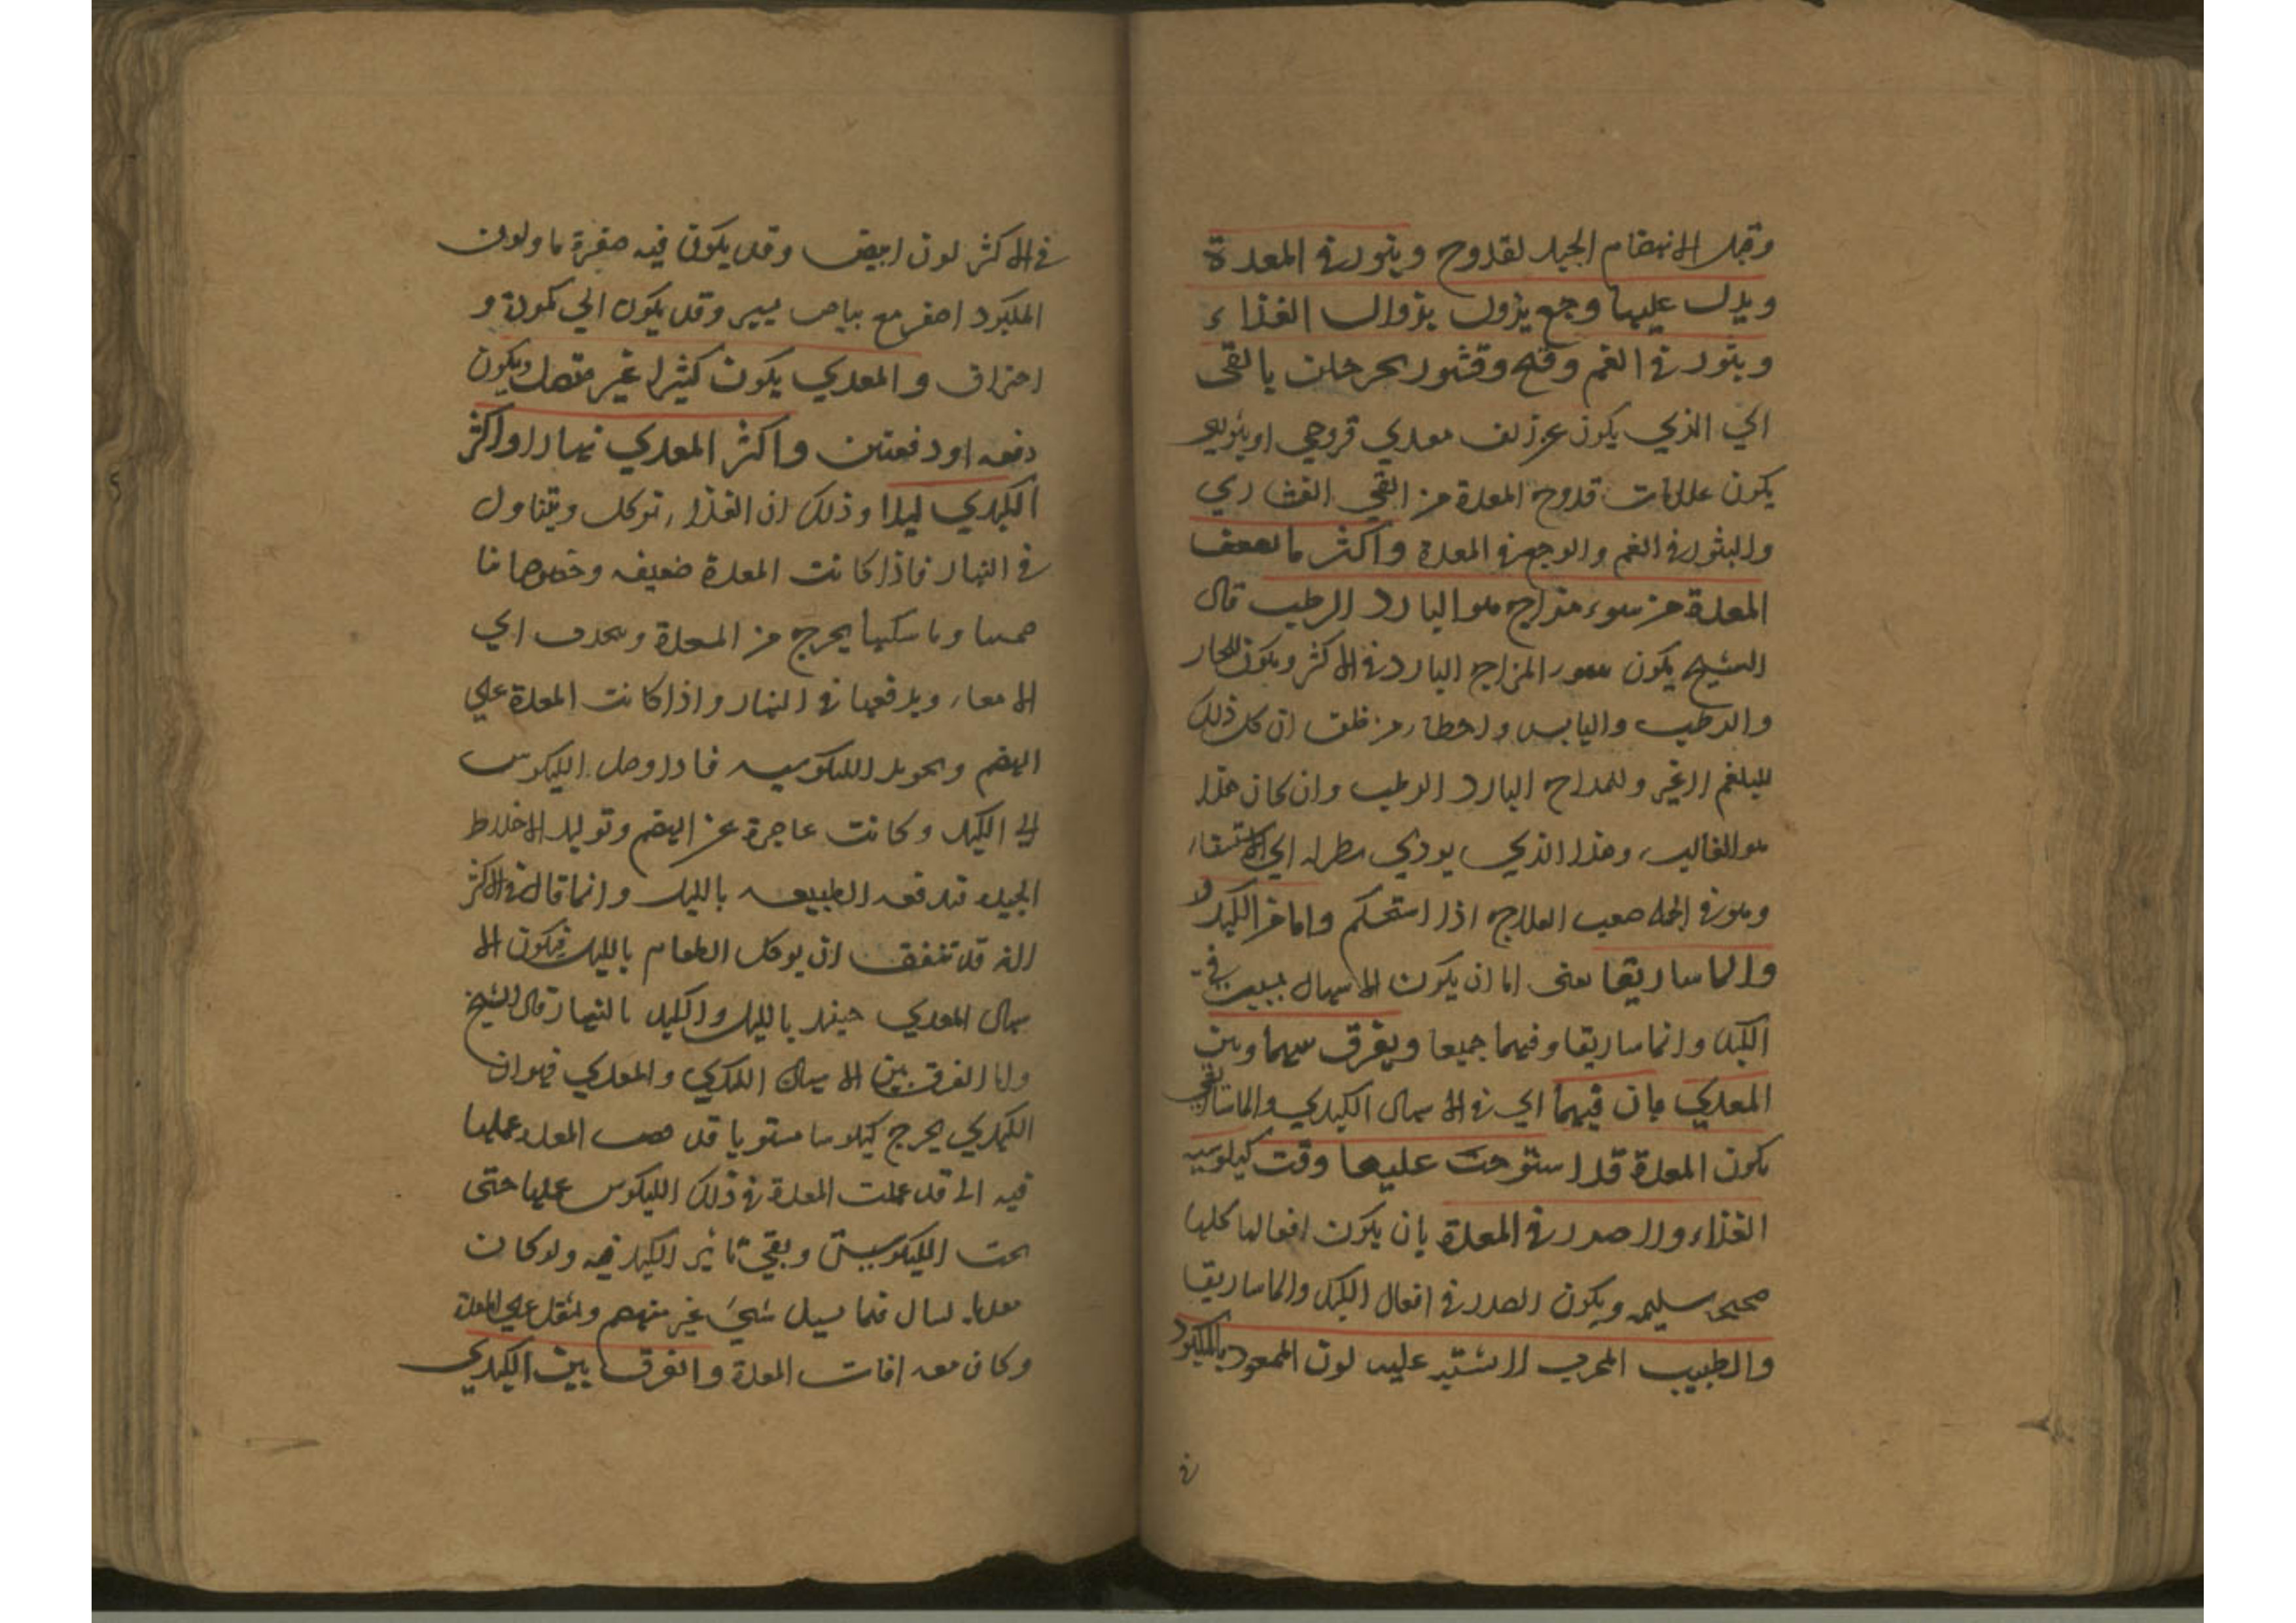 وقبل الانهضام الجيد لقروح وبثور في المعدة
ويدل عليها وجع يزول بزوال الغذاء
وبثور في الفم وقلح وقشور يخرجان بالقى
اي الذي يكون عن معدي قروحي او بثوري
يكون علامات قروح المعدة من القي القشاري
والبثور في الفم والوجع في المعدة واكثر ما يضعف
المعدة من سوء مزاج هو البارد الرطب قال
الشيخ يكون سور المزاج البارد في الاكثر ويكون للحار
والرطب واليابس واخطاء من ظن ان كل ذلك
للبلغم الغير وللمزاج البارد الرطب وان كان هذا
هو الغالب وهذا الذي يودي مطوله الي الاستسقاء
وهو في الجمله صعب العلاج اذا استحكم واما من الكبد
والماساريقا يعني اما ان يكون الاسهال بسبب في
الكبد وانماساريقا وفيهما جميعا ويفرق بينهما وبين
المعدي بان فيهما اي في الاسهال الكبدي والماساريقي
يكون المعدة قد استوحت عليها وقت كيلوسيه
الغذاء ولا صدر في المعدة بان يكون افعالها كلها
صحيحه سليمه ويكون الصدر في افعال الكبد والماساريقا
والطبيب المجرب لا يشتبه عليه لون الممعود بالمكبود
في
في الاكثر لون ابيض وقد يكون فيه صفرة ما ولون
المكبود اصفر مع بياض يسير وقد يكون الي كمودة و
احتراق والمعدي يكون كثيرا غير متصل ويكون
دفعه او دفعتين واكثر المعدي نهارا واكثر
الكبدي ليلا وذلك ان الغذاء توكل ويتناول
في النهار فاذا كانت المعدة ضعيفه وخصوصا ها
ضمتها وماسكتها يخرج من المعدة وينحدر الي
الامعاء ويدفعها في النهار واذا كانت المعدة علي
الهضم وتحويل الكيلوسيه فاذا وصل الكيلوس
الي الكبد وكانت عاجزة عن الهضم وتوليد الاخلاط
الجيده تدفعه الطبيعه بالليل وانما قال في الاكثر
لانه قد تتفق ان يوكل الطعام بالليل فيكون الا
سهال المعدي حينئذ بالليل والكبد بالنهار قال الشيخ
واما الفرق بين الاسهال الكبدي والمعدي فهو ان
الكبدي يخرج كيلوسا مستويا قد قضت المعده عملها
فيه اي قد عملت المعدة في ذلك الكيلوس عملها حتى
تمت الكيلوسيه وبقي تاثير الكبد فيه ولو كان
معديا لسال فيما يسيل شيء غير منهضم ولثقل علي المعدة
وكان معه افات المعدة والفرق بين الكبدي